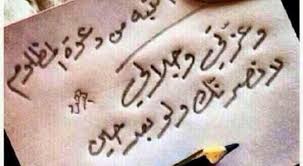 من دعوة المظلوم
وعزتي وجلالي
لانصرنك ولو بعد حين